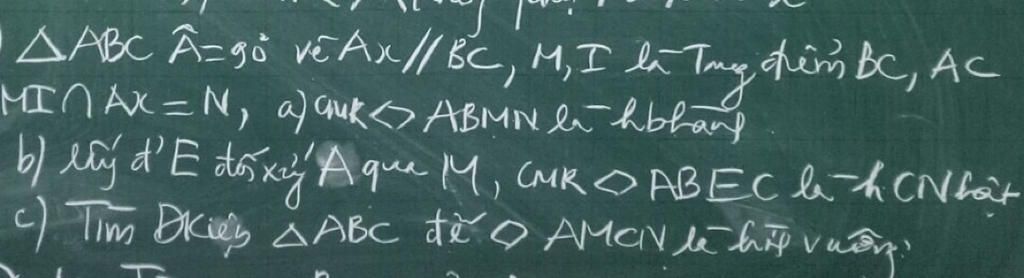 △ABC Â=90° vẽ Ax // BC, M, I là Trung điểm BC, AC
MI ∩ Ax = N, a) CMR ◇ ABMN là hbhàng
b) lấy đ' E đối xứng A qua M, CMR ◇ ABEC là hCNhật
c) Tìm ĐKiện △ABC để ◇ AMCN là hìp vuông.